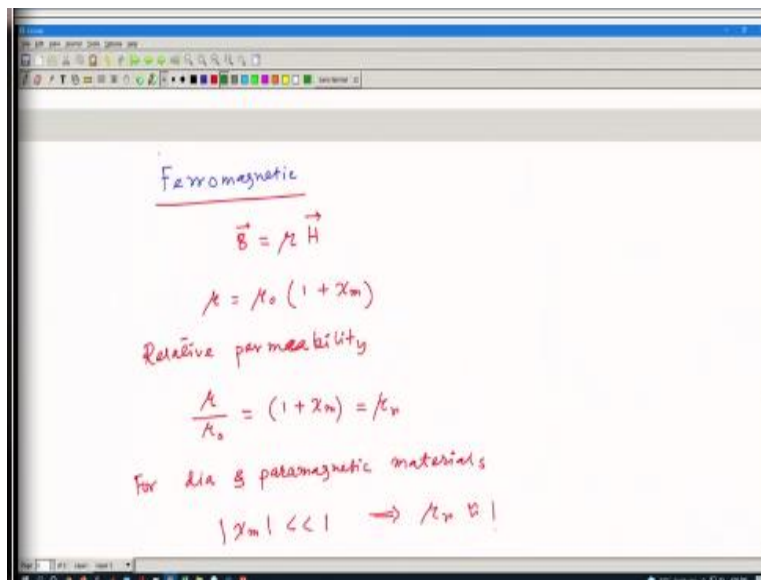 Ferromagnetic
B⃗ = μ H⃗
μ = μ₀ (1 + χm)
Relative permeability
μ/μ₀ = (1 + χm) = μr
For dia & paramagnetic materials
|χm| << 1 ⇒ μr ≈ 1